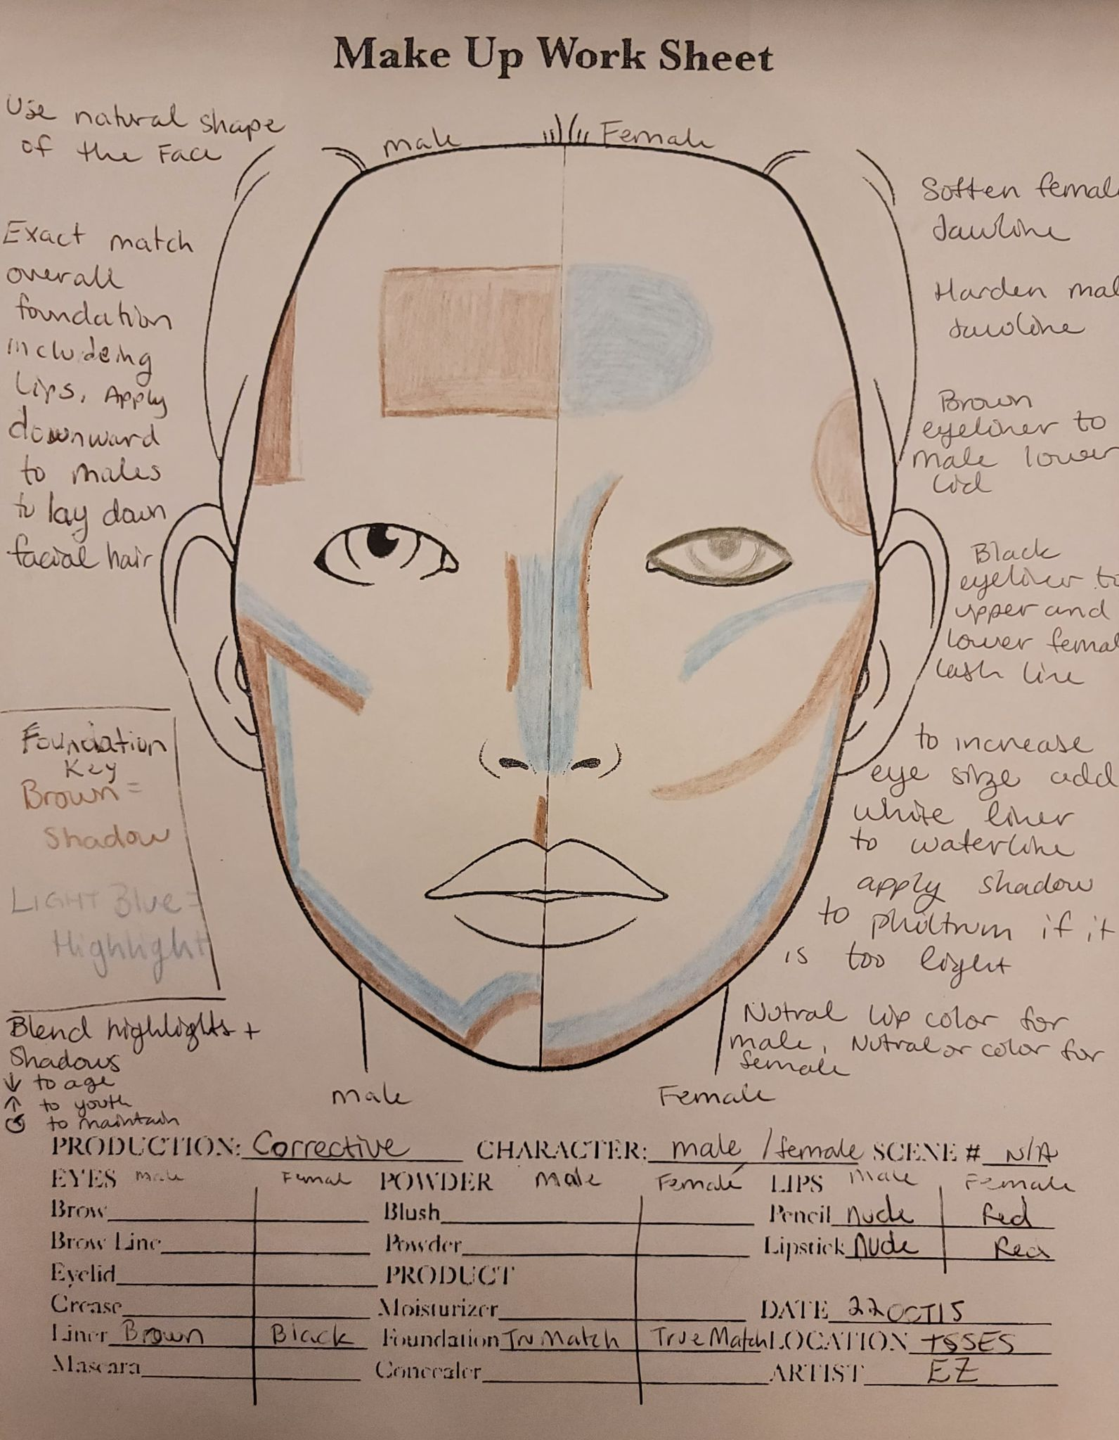 Make Up Work Sheet
male
Female
Use natural shape
of the Face
Exact match
overall
foundation
includeing
Lips, Apply
downward
to males
to lay down
facial hair
Foundation
Key
Brown =
Shadow
LIGHT Blue =
Highlight
Blend highlights +
Shadows
↓ to age
↑ to youth
to maintain
Soften femal
Jawline
Harden mal
Jawline
Brown
eyeliner to
male lower
Lid
Black
eyeliner to
upper and
lower femal
lash line
to increase
eye size add
white liner
to waterline
apply shadow
to philtrum if it
is too light
Nutral Lip color for
male, Nutral or color for
female
male
Female
PRODUCTION: Corrective CHARACTER: male / female SCENE # N/A
EYES Male Femal POWDER Male Female LIPS Male Female
Brow Blush Pencil Nude Red
Brow Line Powder Lipstick Nude Red
Eyelid PRODUCT
Crease Moisturizer DATE 22OCT15
Liner Brown Black Foundation Tru Match True Match LOCATION TSSES
Mascara Concealer ARTIST EZ